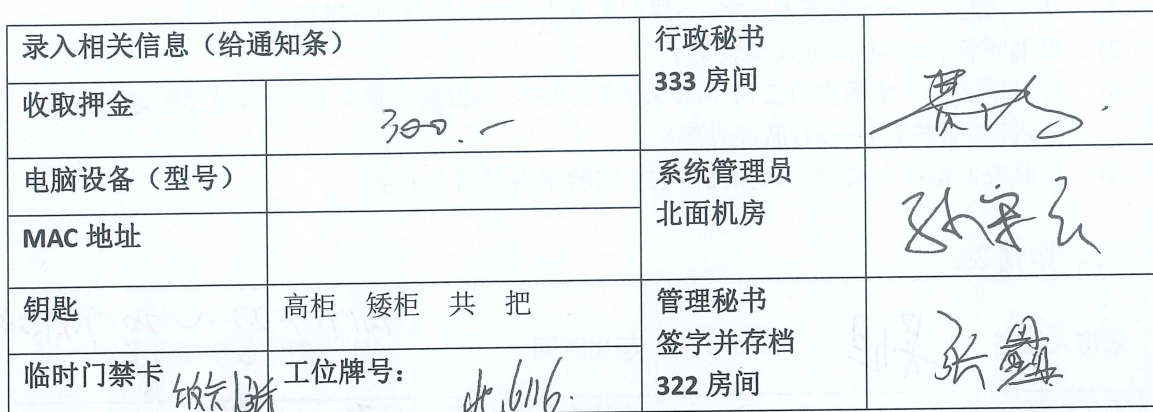 录入相关信息（给通知条）
行政秘书
333 房间
收取押金
300.-
电脑设备（型号）
系统管理员
北面机房
MAC 地址
钥匙
高柜 矮柜 共 把
管理秘书
签字并存档
322 房间
临时门禁卡
工位牌号：
北.6116.